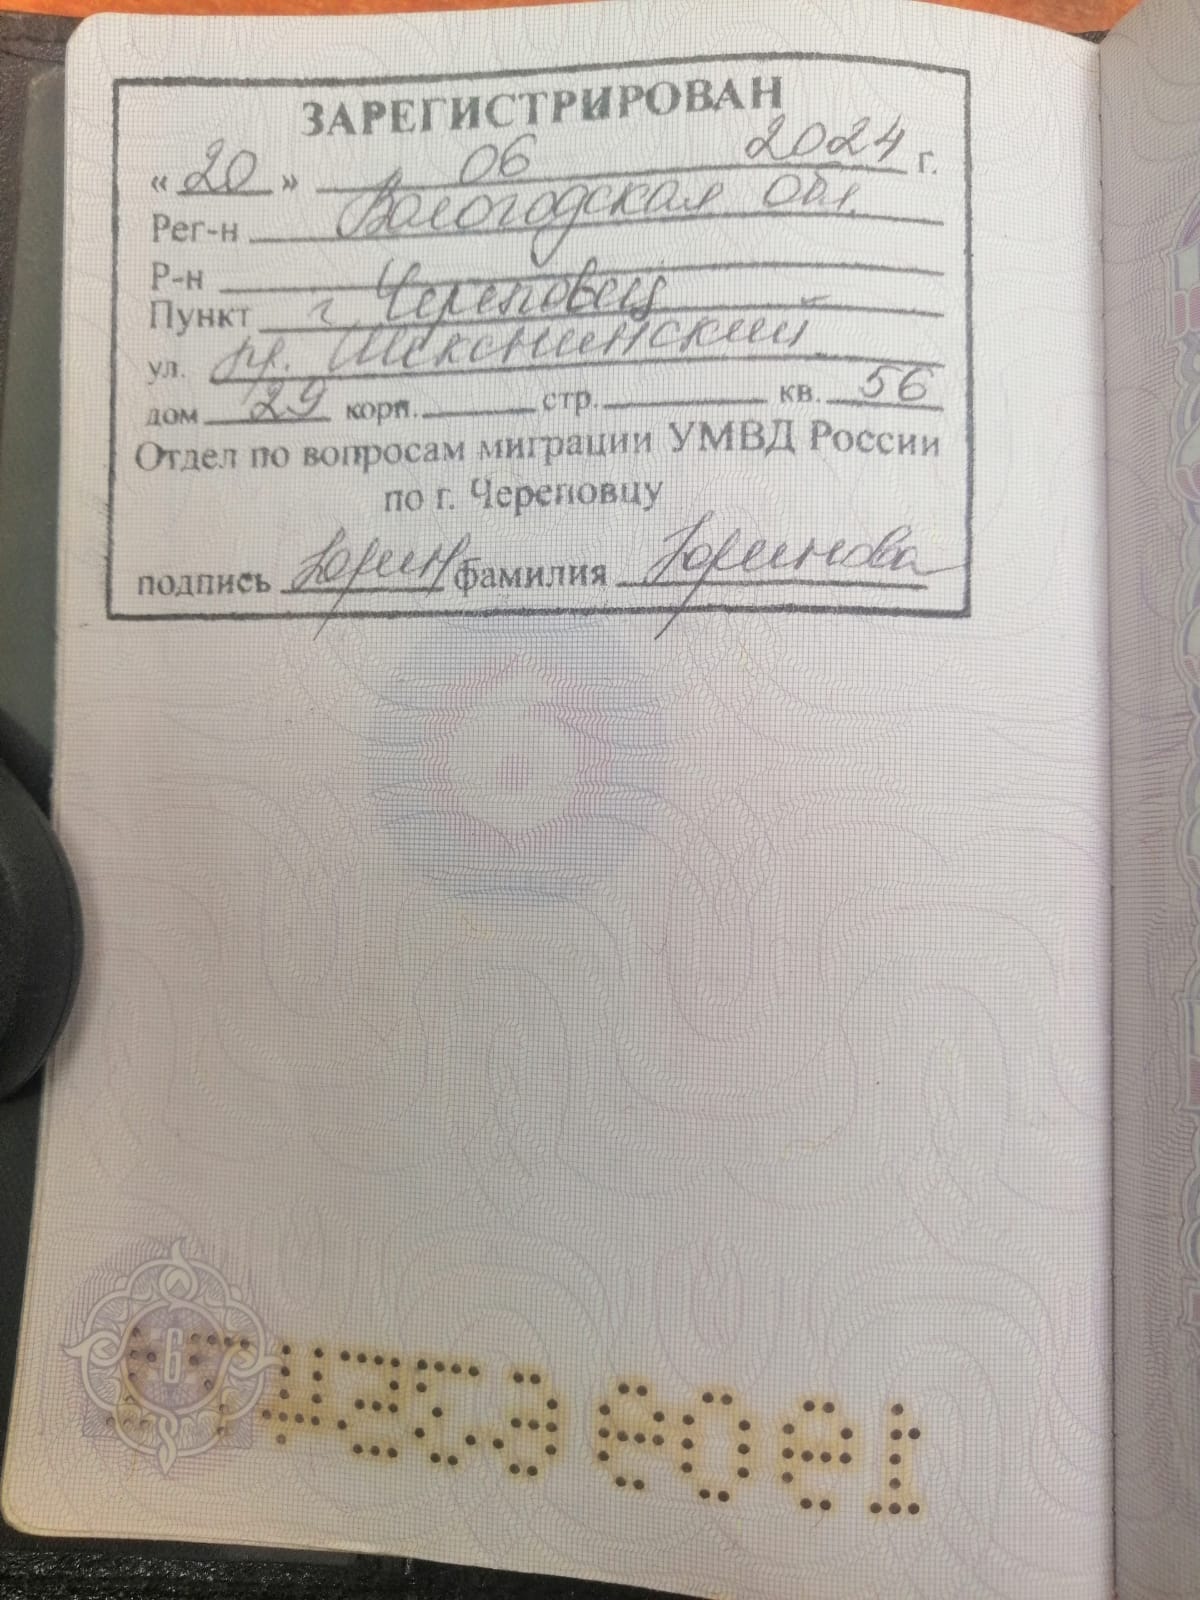 ЗАРЕГИСТРИРОВАН
« 20 » 06 2024 г.
Рег-н Вологодская обл.
Р-н
Пункт г Череповец
ул. пр. Шекснинский
дом 29 корп. стр. кв. 56
Отдел по вопросам миграции УМВД России
по г. Череповцу
подпись фамилия
6